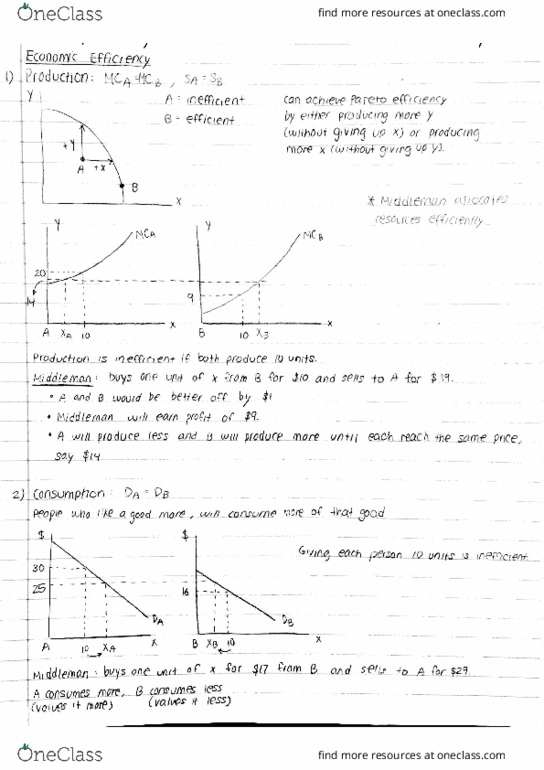 OneClass
find more resources at oneclass.com
Economic Efficiency
1) Production: MCA=MCB , SA=SB
Y
A = inefficient
B = efficient
can achieve Pareto efficiency
by either producing more y
(without giving up x) or producing
more x (without giving up y).
+Y
A
+X
B
X
* Middleman allocates
resources efficiently
Y
MCA
20
14
A XA 10 X
Y
MCB
9
B 10 XB X
Production is inefficient if both produce 10 units.
Middleman: buys one unit of x from B for $10 and sells to A for $19.
• A and B would be better off by $1
• Middleman will earn profit of $9.
• A will produce less and B will produce more until each reach the same price,
say $14
2) Consumption: DA = DB
People who like a good more, will consume more of that good
$
30
25
DA
A 10 XA X
$
16
DB
B XB 10 X
Giving each person 10 units is inefficient
Middleman: buys one unit of x for $17 from B and sells to A for $29.
A consumes more, B consumes less
(values it more) (values it less)
OneClass
find more resources at oneclass.com